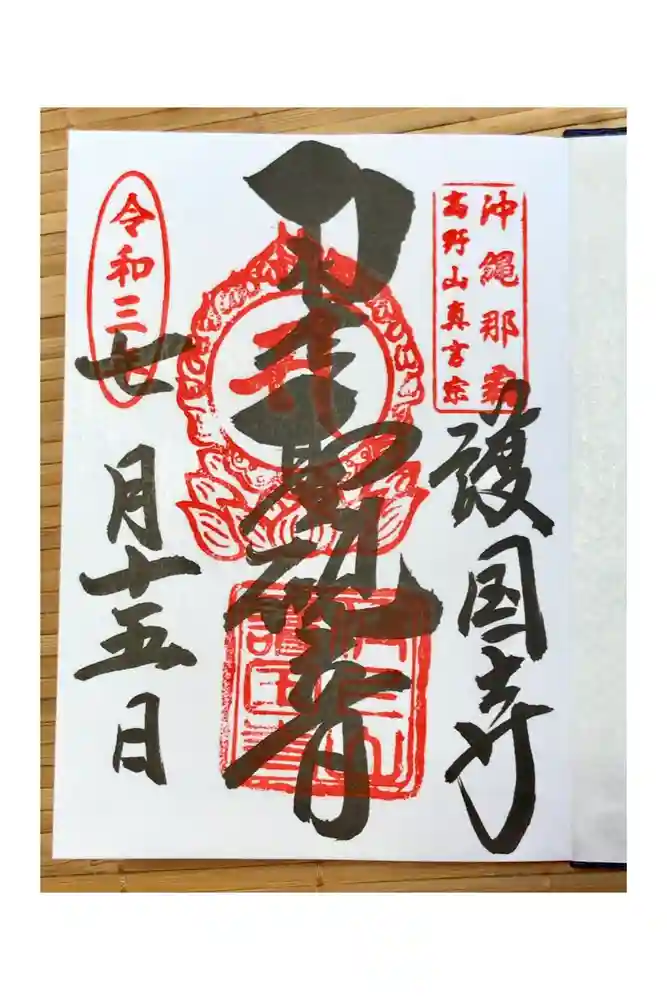 沖縄那覇
高野山真言宗
護国寺
観音
護国寺
令和三年
七月十五日